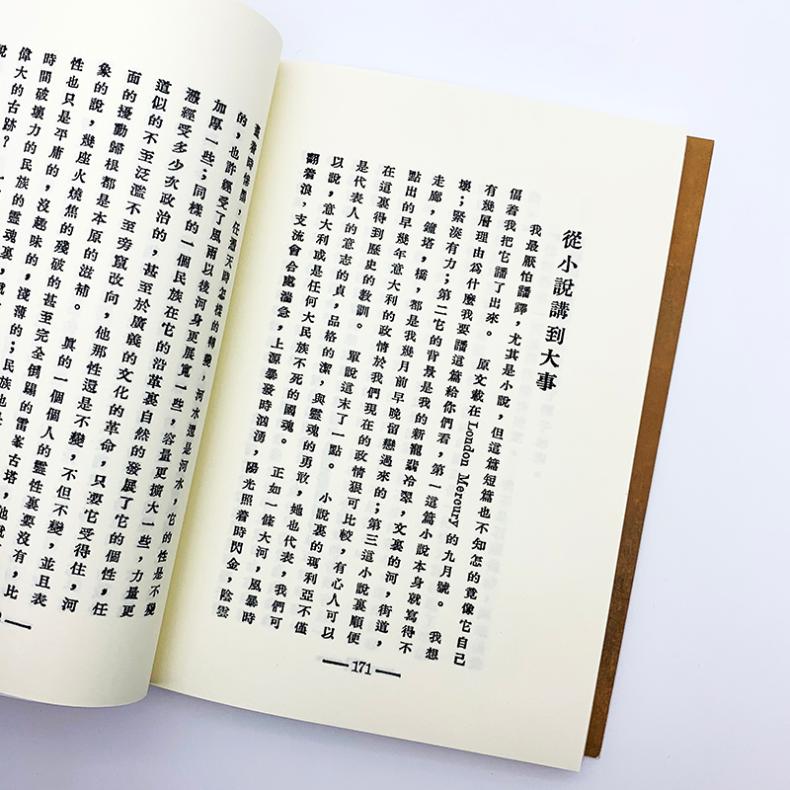 從小說講到大事
我最厭怕譒譯,尤其是小說,但這篇短篇也不知怎的竟像它自己
偪着我把它譒了出來。 原文載在London Meroury的九月號。 我想
有幾層理由為什麼我要譒這篇給你們看,第一這篇小說本身就寫得不
壞;緊湊有力;第二它的背景是我的新寵翡冷翠,文裏的河,街道,
走廊,鐘塔,橋,都是我幾月前早晚留戀過來的;第三這小說裏順便
點出的早幾年意大利的政情於我們現在的政情狠可比較,有心人可以
在這裏得到歷史的教訓。 單說這末了一點。 小說裏的瑪利亞不僅
是代表人的意志的貞,品格的潔,與靈魂的勇敢,她也代表,我們可
以說,意大利或是任何大民族不死的國魂。 正如一條大河,風暴時
翻着浪,支流會合處湍急,上源暴發時洶湧,陽光照着時閃金,陰雲
171
蓋着時慘閉,任憑天時怎樣的轉變,河水還是河水,它的性是不變
的,也許經受了風雨以後河身更展寬一些,容量更擴大一些,力量更
加厚一些;同樣的一個民族在它的沿革裏自然的發展了它的個性,任
憑經受多少次政治的,甚至於廣義的文化的革命,只要它受得住,河
道似的不至泛濫不至旁竄改向,他那性還是不變,不但不變,並且表
面的擾動歸根都是本原的滋補。 真的一個個人的靈性裏要沒有,比
象的說,幾座火燒焦的殘破的甚至完全倒蹋的雷峯古塔,他
性也只是平庸的,沒趣味的,淺薄的;民族也是
時間破壞力的民族的靈魂裏,
偉大的古跡?